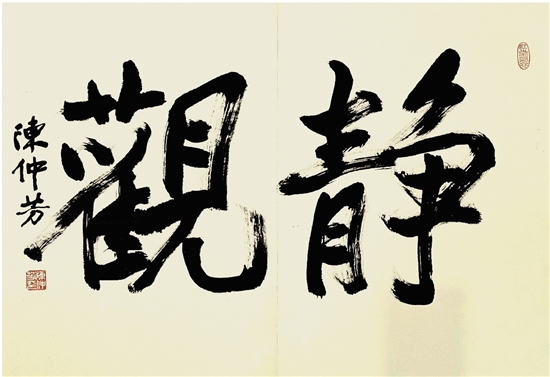 静觀
陳仲芳